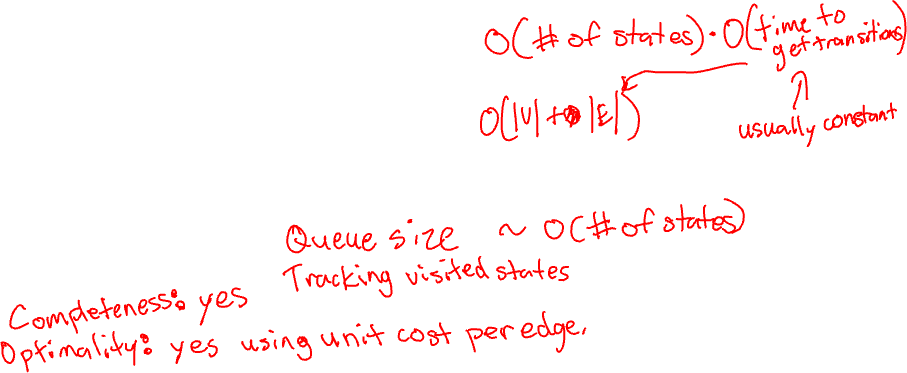 O(# of states) · O(time to get transitions)
O(|V| + |E|)
usually constant
Queue size ~ O(# of states)
Tracking visited states
Completeness: yes
Optimality: yes using unit cost per edge.